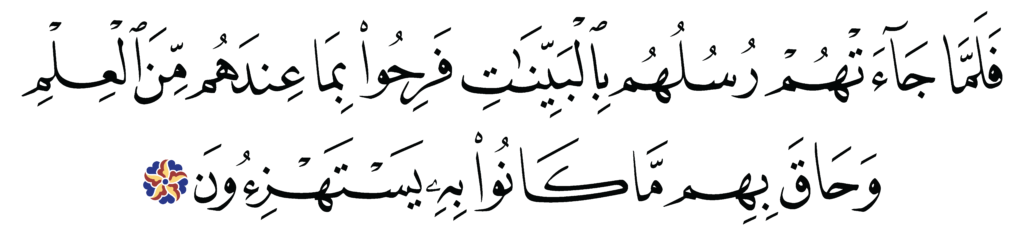 فَلَمَّا جَآءَتْهُمْ رُسُلُهُم بِٱلْبَيِّنَٰتِ فَرِحُوا۟ بِمَا عِندَهُم مِّنَ ٱلْعِلْمِ
وَحَاقَ بِهِم مَّا كَانُوا۟ بِهِۦ يَسْتَهْزِءُونَ